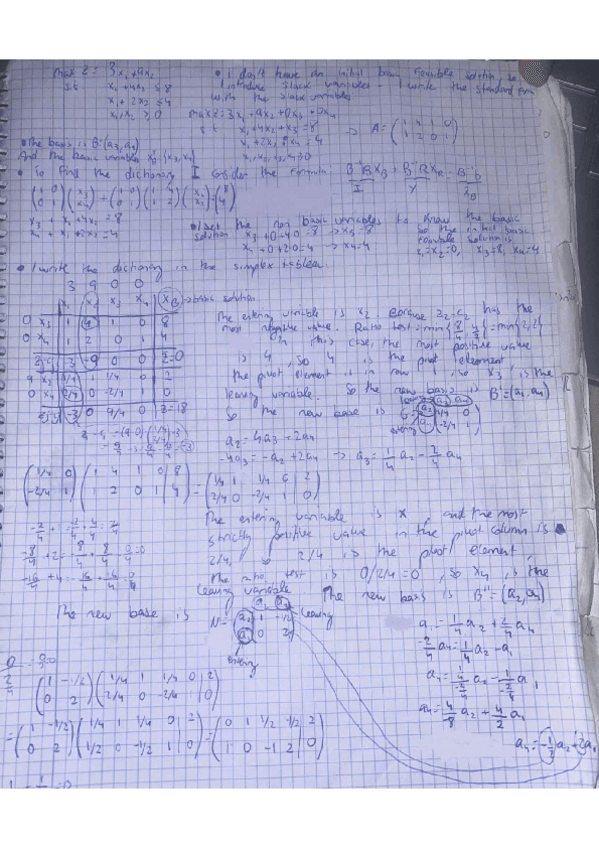 max z = 3x₁+9x₂
st x₁+4x₂ ≤ 8
x₁+2x₂ ≤ 4
x₁,x₂ ≥ 0
• I don't have an initial basic feasible solution so
I introduce slack variables. I write the standard form
with the slack variables
max z = 3x₁+9x₂+0x₃+0x₄
st x₁+4x₂+x₃=8
x₁+2x₂ x₄=4
x₁,x₂,x₃,x₄≥0
→ A = (1 4 1 0
1 2 0 1)
• The basis is B=(a₃,a₄)
And the basic variables {x₃,x₄}
• To find the dictionary I the formula B⁻¹B x_B + B⁻¹R x_R = B⁻¹b
x₃ + x₁+4x₂=8
x₄ + x₁+2x₂=4
• I set the non basic variables to know the basic
solution x₃+0+4·0=8 → x₃=8
x₄+0+2·0=4 → x₄=4
So the initial basic
feasible solution is
x₁=x₂=0, x₃=8, x₄=4
• I write the dictionary in the simplex tableau
3 9 0 0
x₁ x₂ x₃ x₄ x_B → basic solution
0 x₃ 1 4 1 0 8
0 x₄ 1 2 0 1 4
-3 -9 0 0 z=0
9 x₂ 1/4 1 1/4 0 2
0 x₄ 2/4 0 -2/4 1 0
0 9/4 0 z=18
The entering variable is x₂ because z₂-c₂ has the
most negative value. Ratio test=min{8/4, 4/2}=min{2,2}
In this case, the most positive value
is 4, so 4 is the pivot element
the pivot element is in row 1, so x₃ is the
leaving variable. So the new basis is B'=(a₂,a₄)
So the new base is
leaving
entering
a₂ = 4a₃+2a₄
-4a₃=-a₂+2a₄ → a₃ = 1/4 a₂ - 2/4 a₄
(1/4 0
-2/4 1) (1 4 1 0 8
1 2 0 1 4) = (1/4 1 1/4 0 2
2/4 0 -2/4 1 0)
-8/4 + 2 = -8/4 + 8/4 = 0/4 = 0
-16/4 + 4 = -16/4 + 16/4 = 0/4
The entering variable is x₁, and the most
strictly positive value in the pivot column is
2/4, so 2/4 is the pivot element
The ratio test is 0/2/4=0, so x₄ is the
leaving variable The new basis is B''=(a₂,a₁)
The new base is
leaving
entering
a₁ = 1/4 a₂ + 2/4 a₄
-2/4 a₄ = 1/4 a₂ - a₁
a₄ = -1/2 a₂ + 2a₁
(1 -1/2
0 2) (1/4 1 1/4 0 2
2/4 0 -2/4 1 0)
= (1 -1/2
0 2) (1/4 1 1/4 0 2
1/2 0 -1/2 1 0) = (0 1 1/2 -1/2 2
1 0 -1 2 0)